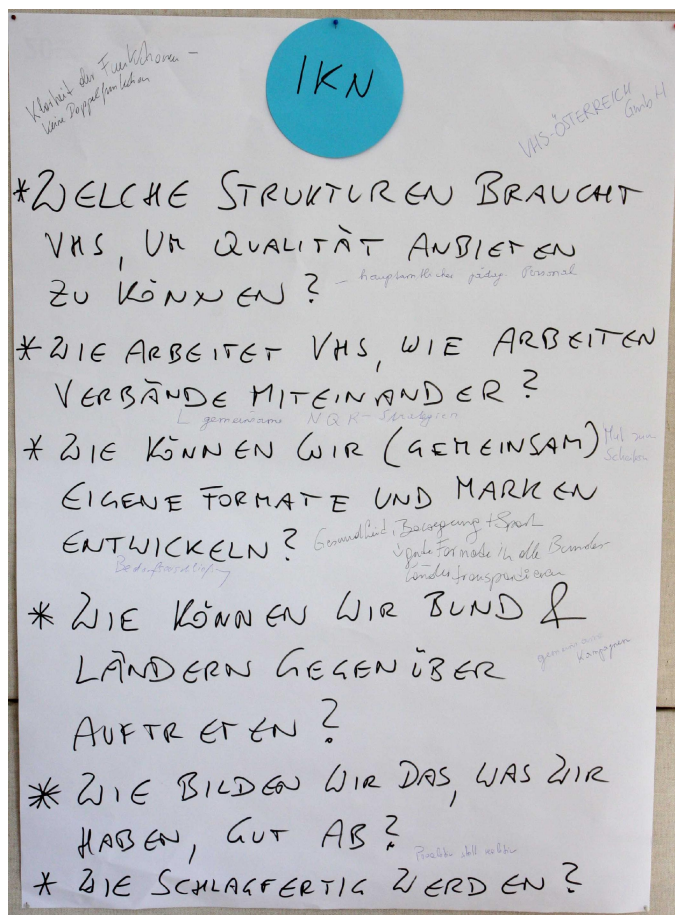 IKN
Klarheit der Funktionen –
keine Doppelfunktionen
VHS-ÖSTERREICH
GmbH
* WELCHE STRUKTUREN BRAUCHT
VHS, UM QUALITÄT ANBIETEN
ZU KÖNNEN?
– hauptamtliches pädag. Personal
* WIE ARBEITET VHS, WIE ARBEITEN
VERBÄNDE MITEINANDER?
gemeinsame NQR-Strategien
* WIE KÖNNEN WIR (GEMEINSAM)
Mut zum
Scheitern
EIGENE FORMATE UND MARKEN
ENTWICKELN?
Gesundheit, Bewegung + Sport
gute Formate in alle Bundes-
länder transportieren
* WIE KÖNNEN WIR BUND &
LÄNDERN GEGENÜBER
gemeinsame
Kampagnen
AUFTRETEN?
* WIE BILDEN WIR DAS, WAS WIR
HABEN, GUT AB?
statt
* WIE SCHLAGFERTIG WERDEN?